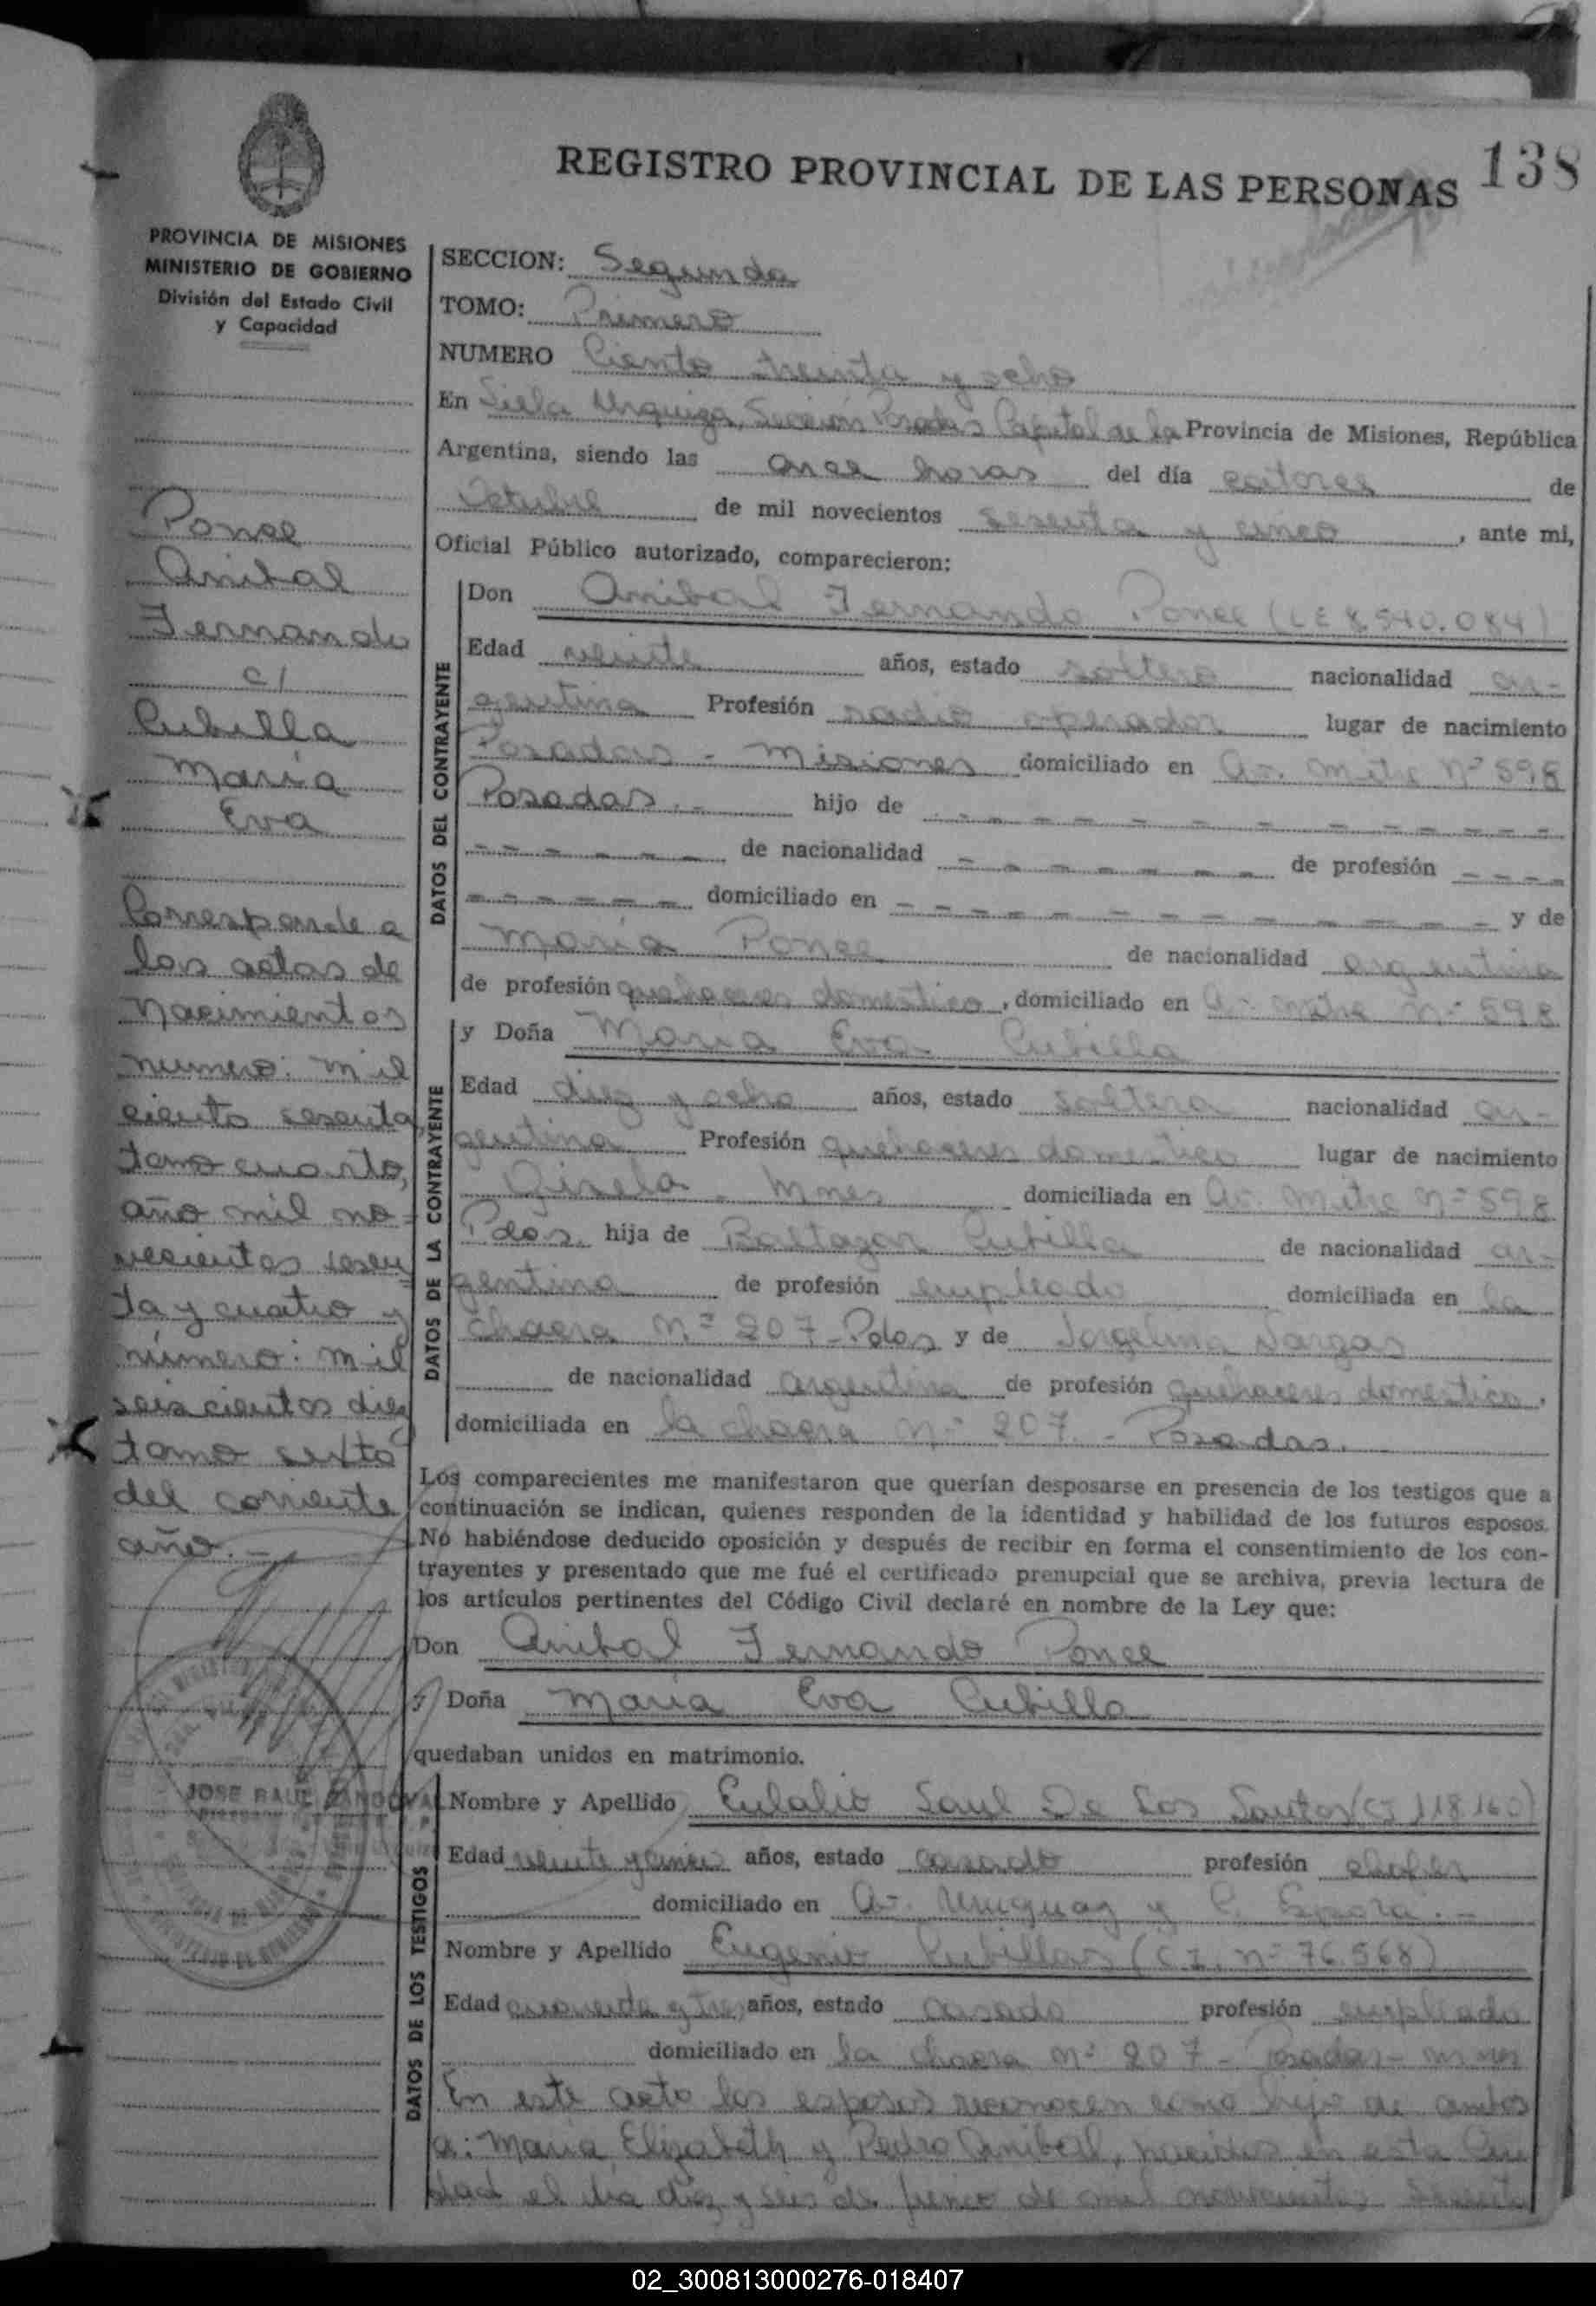 REGISTRO PROVINCIAL DE LAS PERSONAS 138
PROVINCIA DE MISIONES
MINISTERIO DE GOBIERNO
División del Estado Civil
y Capacidad
SECCION: Segunda
TOMO: Primero
NUMERO Ciento treinta y ocho
En Villa Urquiza, Sección Posadas Capital de la Provincia de Misiones, República
Argentina, siendo las once horas del día catorce de
Octubre de mil novecientos sesenta y cinco, ante mi,
Oficial Público autorizado, comparecieron:
Ponce
Anibal
Fernando
c/
Cubilla
María
Eva
Corresponde a
las actas de
Nacimientos
numero: mil
ciento sesenta,
tomo cuarto,
año mil no-
vecientos sesen-
ta y cuatro y
número: mil
seiscientos diez
tomo sexto
del corriente
año.-
DATOS DEL CONTRAYENTE
Don Anibal Fernando Ponce (LE 8.540.084)
Edad veinte años, estado soltero nacionalidad ar-
gentina Profesión radio operador lugar de nacimiento
Posadas - Misiones domiciliado en Av. Mitre Nº 598
Posadas.- hijo de - - - - - - - - - -
- - - - - - de nacionalidad - - - - - - - de profesión - - - -
- - - - - - domiciliado en - - - - - - - - - - - - y de
María Ponce de nacionalidad argentina
de profesión quehaceres domestico, domiciliado en Av. Mitre Nº 598
DATOS DE LA CONTRAYENTE
y Doña María Eva Cubilla
Edad diez y ocho años, estado soltera nacionalidad ar-
gentina Profesión quehaceres domestico lugar de nacimiento
Gisela - Mnes domiciliada en Av. Mitre Nº 598
Pdas. hija de Baltazar Cubilla de nacionalidad ar-
gentina de profesión empleado domiciliada en la
chacra Nº 207 - Pdas y de Jorgelina Vargas
de nacionalidad argentina de profesión quehaceres domestico,
domiciliada en la chacra Nº 207.- Posadas.
Los comparecientes me manifestaron que querían desposarse en presencia de los testigos que a
continuación se indican, quienes responden de la identidad y habilidad de los futuros esposos.
No habiéndose deducido oposición y después de recibir en forma el consentimiento de los con-
trayentes y presentado que me fué el certificado prenupcial que se archiva, previa lectura de
los artículos pertinentes del Código Civil declaré en nombre de la Ley que:
Don Anibal Fernando Ponce
y Doña María Eva Cubilla
quedaban unidos en matrimonio.
JOSE RAUL SANDOVAL
DATOS DE LOS TESTIGOS
Nombre y Apellido Eulalio Saul De Los Santos (CI 118160)
Edad veinte y cinco años, estado casado profesión chofer
domiciliado en Av. Uruguay y C. Espora.-
Nombre y Apellido Eugenio Cubillas (C.I. Nº 76.568)
Edad cuarenta y tres años, estado casado profesión empleado
domiciliado en la chacra Nº 207 - Posadas - Mnes
En este acto los esposos reconocen como hijo de ambos
a: María Elizabeth y Pedro Anibal, nacidos en esta Ciu
dad el día diez y seis de junio de mil novecientos sesenta
02_300813000276-018407